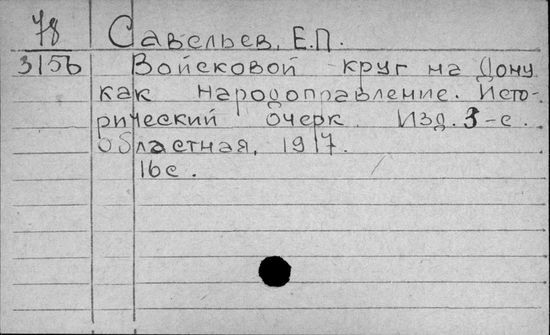 78 Савельев, Е.П.
3156 Войсковой круг на Дону
как народоправление. Исто-
рический очерк. Изд. 3-е.
Областная, 1917.
16с.